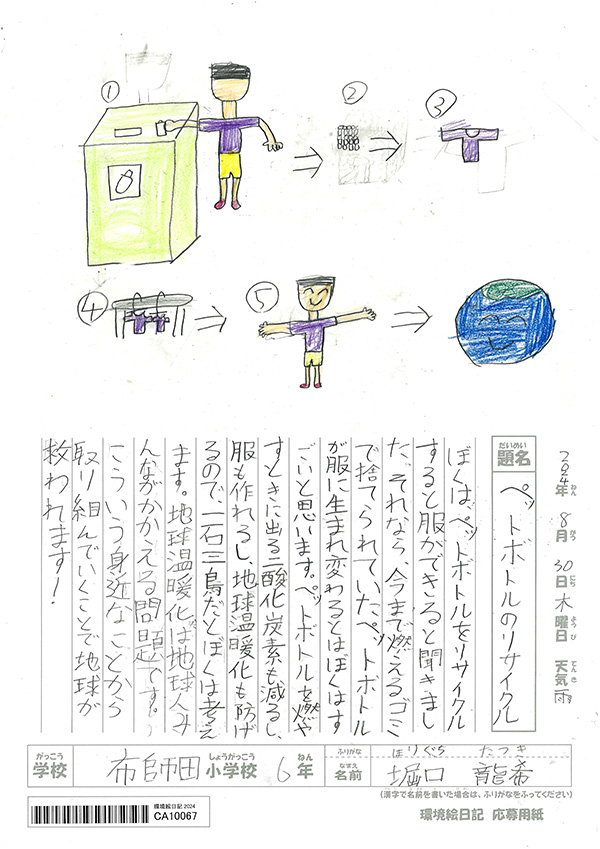 ①
②
③
④
⑤
2024年ねん 8月がつ 30日にち 木曜日ようび 天気てんき 雨
題名だいめい ペットボトルのリサイクル
ぼくは、ペットボトルをリサイクル
すると服ができると聞きまし
た。それなら、今まで燃えるゴミ
で捨てられていたペットボトル
が服に生まれ変わるとはぼくはす
ごいと思います。ペットボトルを燃や
すときに出る二酸化炭素も減るし、
服も作れるし、地球温暖化も防げ
るので、一石三鳥だとぼくは考え
ます。地球温暖化は地球人み
んながかかえる問題です。
こういう身近なことから
取り組んでいくことで地球が
救われます!
学校がっこう 布師田 小学校しょうがっこう 6年ねん 名前なまえ 堀口 龍希
ふりがな ほりぐち たつき
(漢字で名前を書いた場合は、ふりがなをふってください)
環境絵日記 2024
CA10067
環境絵日記 応募用紙